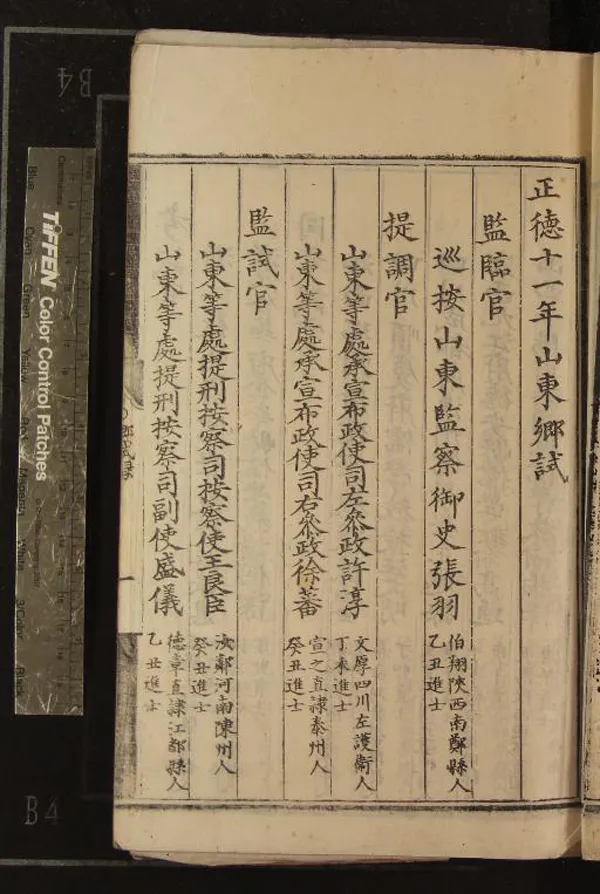 正德十一年山東鄉試
監臨官
巡按山東監察御史張羽
伯翔陝西南鄭縣人
乙丑進士
提調官
山東等處承宣布政使司左叅政許淳
文厚四川左護衛人
丁未進士
山東等處承宣布政使司右叅政徐蕃
宣之直隷泰州人
癸丑進士
監試官
山東等處提刑按察司按察使王良臣
汝鄰河南陳州人
癸丑進士
山東等處提刑按察司副使盛儀
德章直隷江都縣人
乙丑進士
一
TIFFEN Color Control Patches
Blue
Green
Yellow
Magenta
White
3/Color
Black
B4
B4